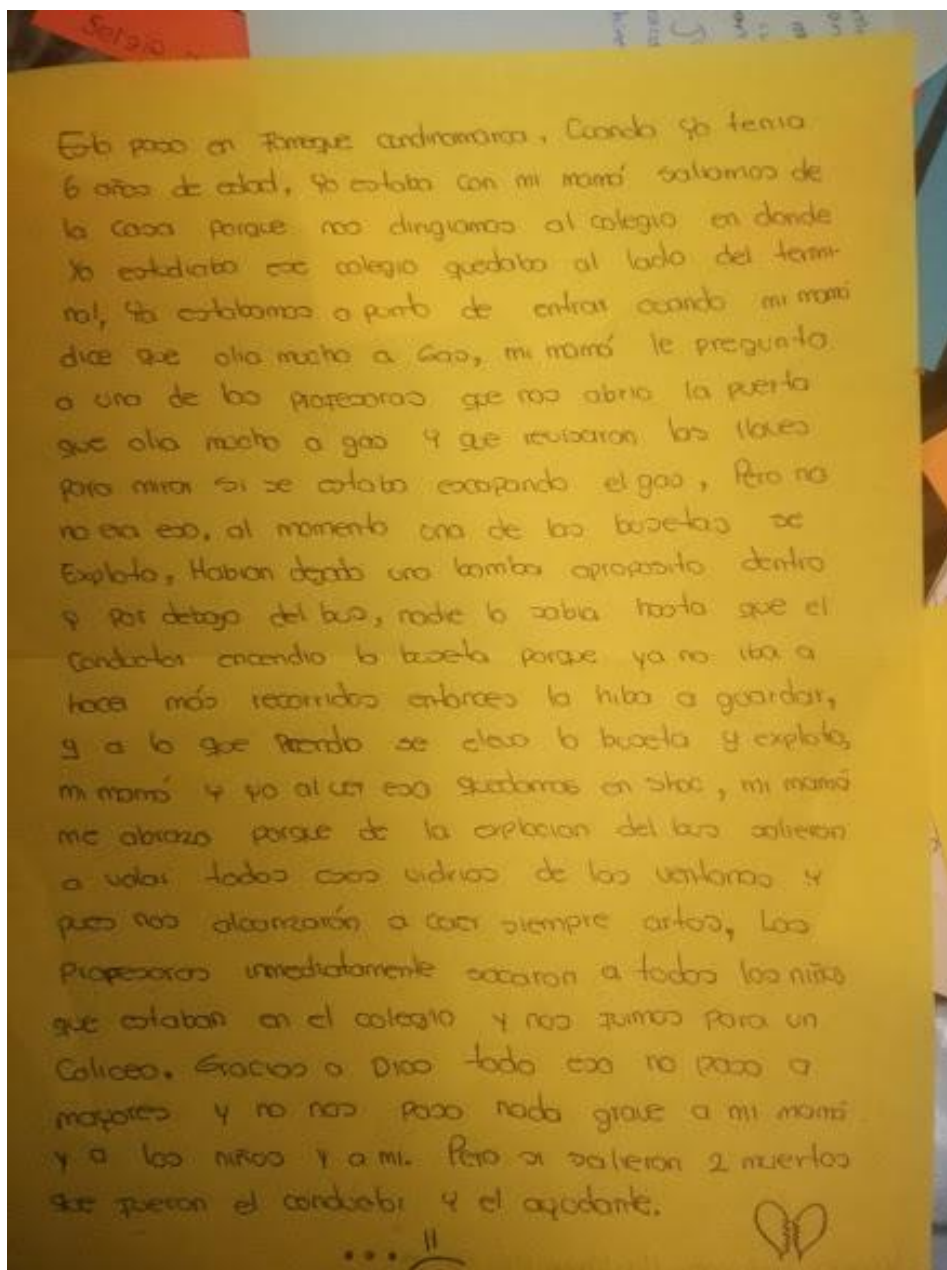 Sergio
Esto paso en Fomeque cundinamarca, Cuando yo tenia
6 años de edad, yo estaba con mi mamá saliamos de
la casa porque nos dirigiamos al colegio en donde
yo estudiaba ese colegio quedaba al lado del termi-
nal, Ya estabamos a punto de entrar cuando mi mamá
dice que olia mucho a Gas, mi mamá le pregunta
a una de las profesoras que nos abrio la puerta
que olia mucho a gas y que revisaron las llaves
para mirar si se estaba escapando el gas, Pero no
no era eso, al momento una de las busetas se
Exploto, Habian dejado una bomba aproposito dentro
y por debajo del bus, nadie lo sabia hasta que el
conductor encendio la buseta porque ya no iba a
hacer más recorridos entonces la hiba a guardar,
y a lo que Prendo se elevo la buseta y exploto,
mi mamá y yo al ver eso quedamos en shoc, mi mamá
me abrazo porque de la explocion del bus salieron
a volar todos esos vidrios de las ventanas y
pues nos alcanzarón a caer siempre artos, Las
Profesoras inmediatamente sacaron a todos los niños
que estaban en el colegio y nos fuimos para un
Coliceo. Gracias a Dios todo eso no paso a
mayores y no nos paso nada grave a mi mamá
y a los niños y a mi. Pero si salieron 2 muertos
que fueron el conductor y el ayudante.